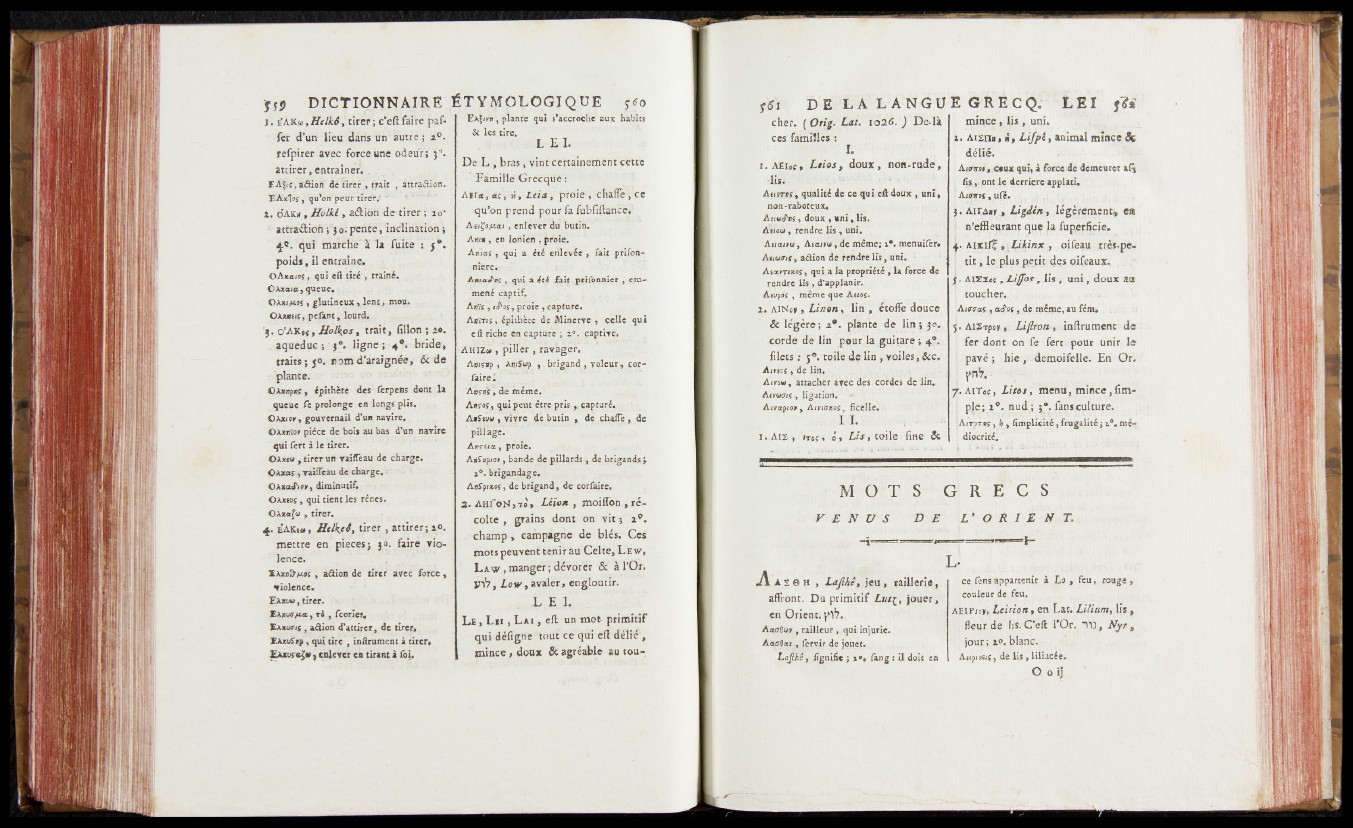 559 DICTIONNAIRE ÉTYMOLOGIQUE 560
1. ἕΛΚω, Helkô, tirer; c'eſt faire paſ-
ſer d'un lieu dans un autre; 2°.
reſpirer avec force une odeur; 3°.
attirer, entraîner.
ἕΛξις, action de tirer, trait, attraction.
ἕΛκτος, qu'on peut tirer.
2. ὁΛΚη, Holkê, action de tirer; 2°.
attraction; 3°. pente, inclination;
4°. qui marche à la ſuite; 5°.
poids, il entraîne.
Ολκαιος, qui eſt tiré, traîné.
Ολκαια, queue.
Ολκιμος, glutineux, lent, mou.
Ολκηεις, peſant, lourd.
3. ὁΛΚος, Holkos, trait, ſillon; 2°.
aqueduc; 3°. ligne; 4°. bride,
traits; 5°. nom d'araignée, & de
plante.
Ολκηρης, épithète des ſerpens dont la
queue ſe prolonge en longs plis.
Ολκιον, gouvernail d'un navire.
Ολκηιον piéce de bois au bas d'un navire
qui ſert à le tirer.
Ολκεω, tirer un vaiſſeau de charge.
Ολκας, vaiſſeau de charge.
Ολκαδιον, diminutif.
Ολκευς, qui tient les rênes.
Ολκαζω, tirer.
4. ἕΛΚεω, Helkeô, tirer, attirer; 2°.
mettre en pieces; 3°. faire vio-
lence.
Ελκηθμος, action de tirer avec force,
violence.
Ελκυω, tirer.
Ελκυσμα, τὸ, ſcories.
Ελκυσις, action d'attirer, de tirer.
Ελκυςηρ, qui tire, inſtrument à tirer.
Ελκυςαζω, enlever en tirant à ſoi.
Ελξινη, plante qui s'accroche aux habits
& les tire.
L E I.
De L, bras, vint certainement cette
Famille Grecque:
ΛΕΙα, ας, ἡ, Leia, proie, chaſſe, ce
qu'on prend pour ſa ſubſiſtance.
Λειζομαι, enlever du butin.
Ληιη, en Ionien, proie.
Ληιας, qui a été enlevée, fait priſon-
niere.
Ληιαδης, qui a été fait priſonnier, em-
mené captif.
Ληις, ιδος, proie, capture.
Ληιτις, épithète de Minerve, celle qui
eſt riche en capture; 2°. captive.
ΛΗΙΖω, piller, ravager.
Ληιςηρ, Ληιςωρ, brigand, voleur, cor-
ſaire.
Ληςης, de même.
Ληςος, qui peut être pris, capturé.
Ληςευω, vivre de butin, de chaſſe, de
pillage.
Ληςεια, proie.
Ληςηριον, bande de pillards, de brigands;
2°. brigandage.
Ληςρικος, de brigand, de corſaire.
2. ΛΗΙΟΝ, τὸ, Léion, moiſſon, ré-
colte, grains dont on vit; 2°.
champ, campagne de blés. Ces
mots peuvent tenir au Celte, LEW,
LAW, manger; dévorer & à l'Or.
לוע, Low, avaler, engloutir.
L E I.
LE, LEI, LAI, eſt un mot primitif
qui déſigne tout ce qui eſt délié,
mince, doux & agréable au tou-
561 DE LA LANGUE GRECQ. LEI 562
cher. (Orig. Lat. 1026.) De-là
ces familles:
I.
1. ΛΕΙος, Leios, doux, non-rude,
lis.
Λειοτης, qualité de ce qui eſt doux, uni,
non-raboteux.
Λειωδης, doux, uni, lis.
Λειοω, rendre lis, uni.
Λειαινω, Λεαινω, de même; 2°. menuiſer.
Λειωσις, action de rendre lis, uni.
Λεαντικος, qui a la propriété, la force de
rendre lis, d'applanir.
Λευρος, même que Λειος.
2. ΛΙΝον, Linon, lin, étoffe douce
& légère; 2°. plante de lin; 3°.
corde de lin pour la guitare; 4°.
filets; 5°. toile de lin, voiles, &c.
Λινεος, de lin.
Λινοω, attacher avec des cordes de lin.
Λινωσις, ligation.
Λιναριον, Λινισκος, ficelle.
I I.
1. ΛΙΣ, ιτος, ὁ, Lis, toile fine &
mince, lis, uni.
2. ΛΙΣΠη, ἡ, Liſpê, animal mince &
délié.
Λισποι, ceux qui, à force de demeurer aſ-
ſis, ont le derriere applati.
Λισπος, uſé.
3. ΛΙΓΔην, Ligdên, légèrement, en
n'effleurant que la ſuperficie.
4. ΛΙΚΙΓξ, Likinx, oiſeau très-pe-
tit, le plus petit des oiſeaux.
5. ΛΙΣΣος, Liſſor, lis, uni, doux au
toucher.
Λισσας, αδος, de même, au fém.
5. ΛΙΣΤρον, Liſtron, inſtrument de
fer dont on ſe ſert pour unir le
pavé; hie, demoiſelle. En Or.
7. ΛΙΤος, Litos, menu, mince, ſim-
ple; 2°. nud; 3°. ſans culture.
Λιτοτης, ἡ, ſimplicité, frugalité; 2°. mé-
diocrité.
MOTS GRECS
VENUS DE L'ORIENT.
L.
ΛΑΣΘΗ, Laſthé, jeu, raillerie,
affront. Du primitif Lutz, jouer,
en Orient. לוץ.
Λασθων, railleur, qui injurie.
Λασθαι, ſervir de jouet.
Laſthé, ſignifie; 2°. ſang: il doit en
ce ſens appartenir à Lo, feu, rouge,
couleur de feu.
ΛΕΙΡιον, Leirion, en Lat. Lilium, lis,
fleur de lis. C'eſt l'Or. ניר, Nyr,
jour; 2°. blanc.
Λειριοεις, de lis, liliacée.
O o ij